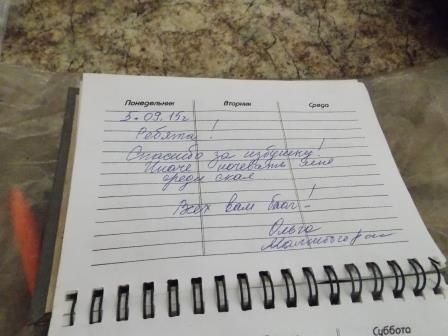 Понедельник Вторник Среда
3.09.15г
Ребята!
Спасибо за избушку!
Иначе ночевать мне
среди скал
Всех вам благ!
Ольга
Суббота